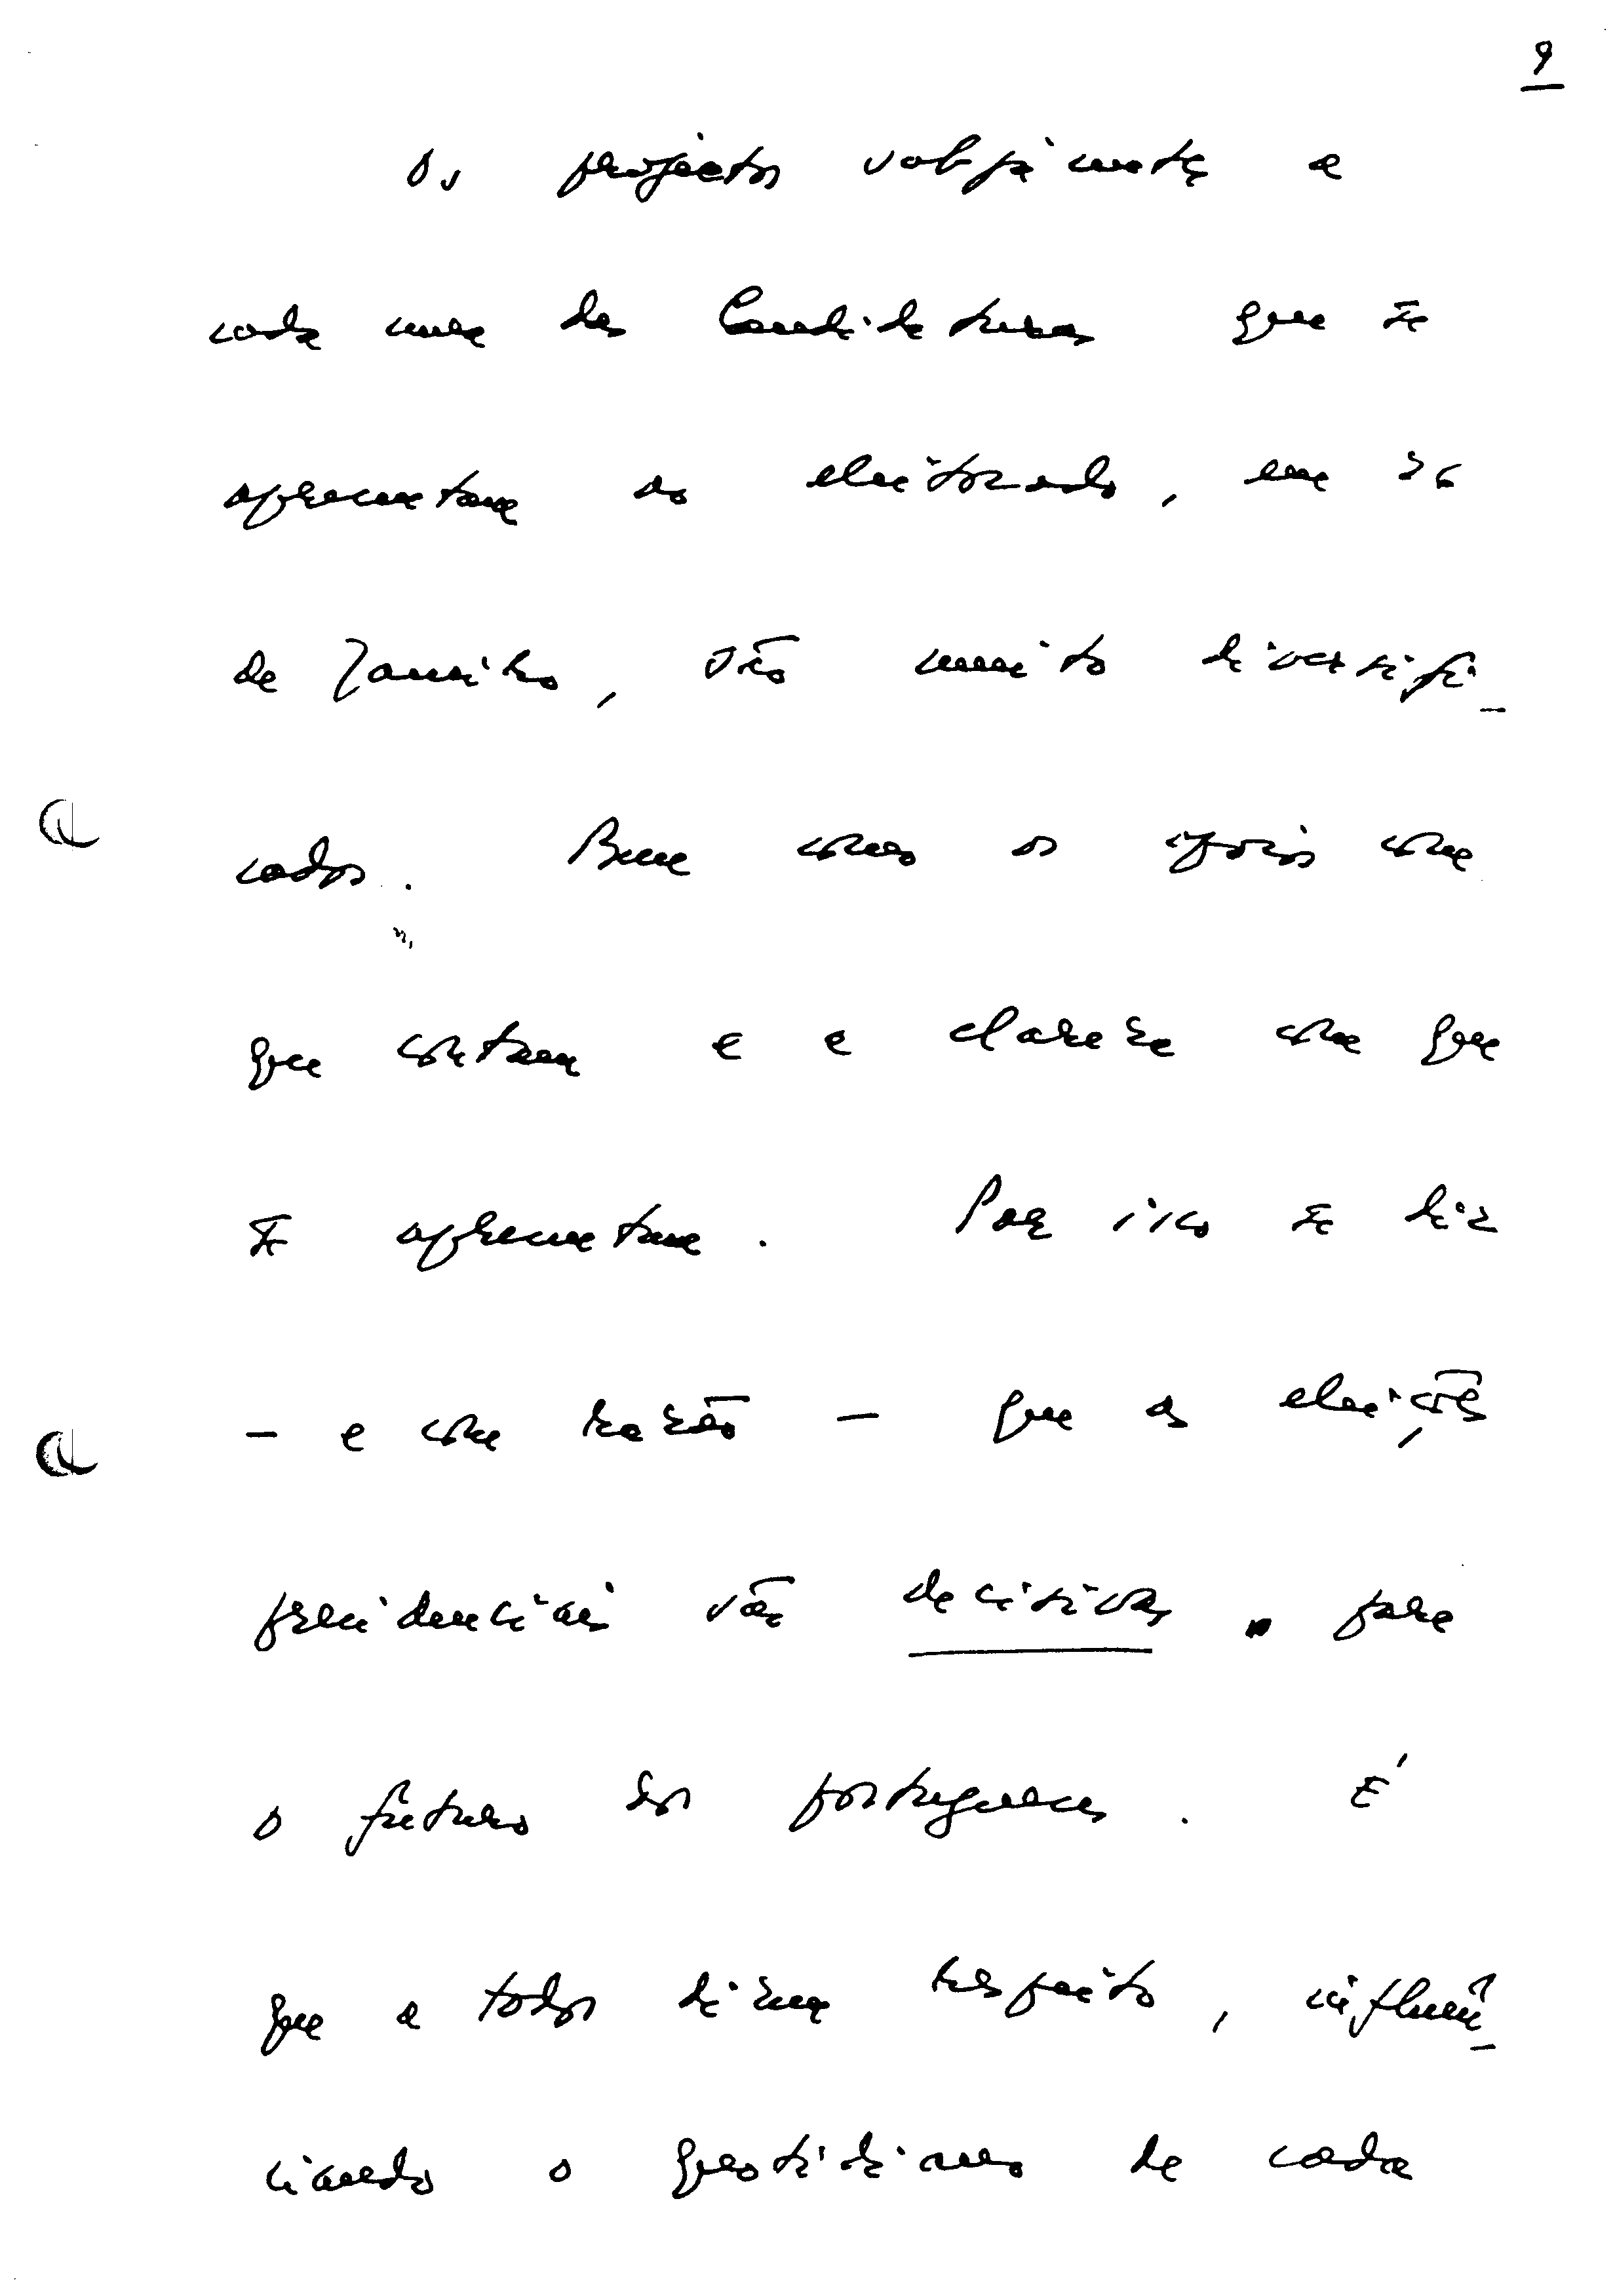 9
Os projectos subjacentes a
cada uma das Candidaturas que se
apresentam ao eleitorado, em 26
de Janeiro, são muito diversifi-
cados. Bem como os apoios com
que contam e a clareza com que
se apresentam. Por isso se diz
- e com razão - que as eleições
presidenciais são decisivas para
o futuro dos portugueses. É
que a todos dizem respeito, influen-
ciando o quotidiano de cada